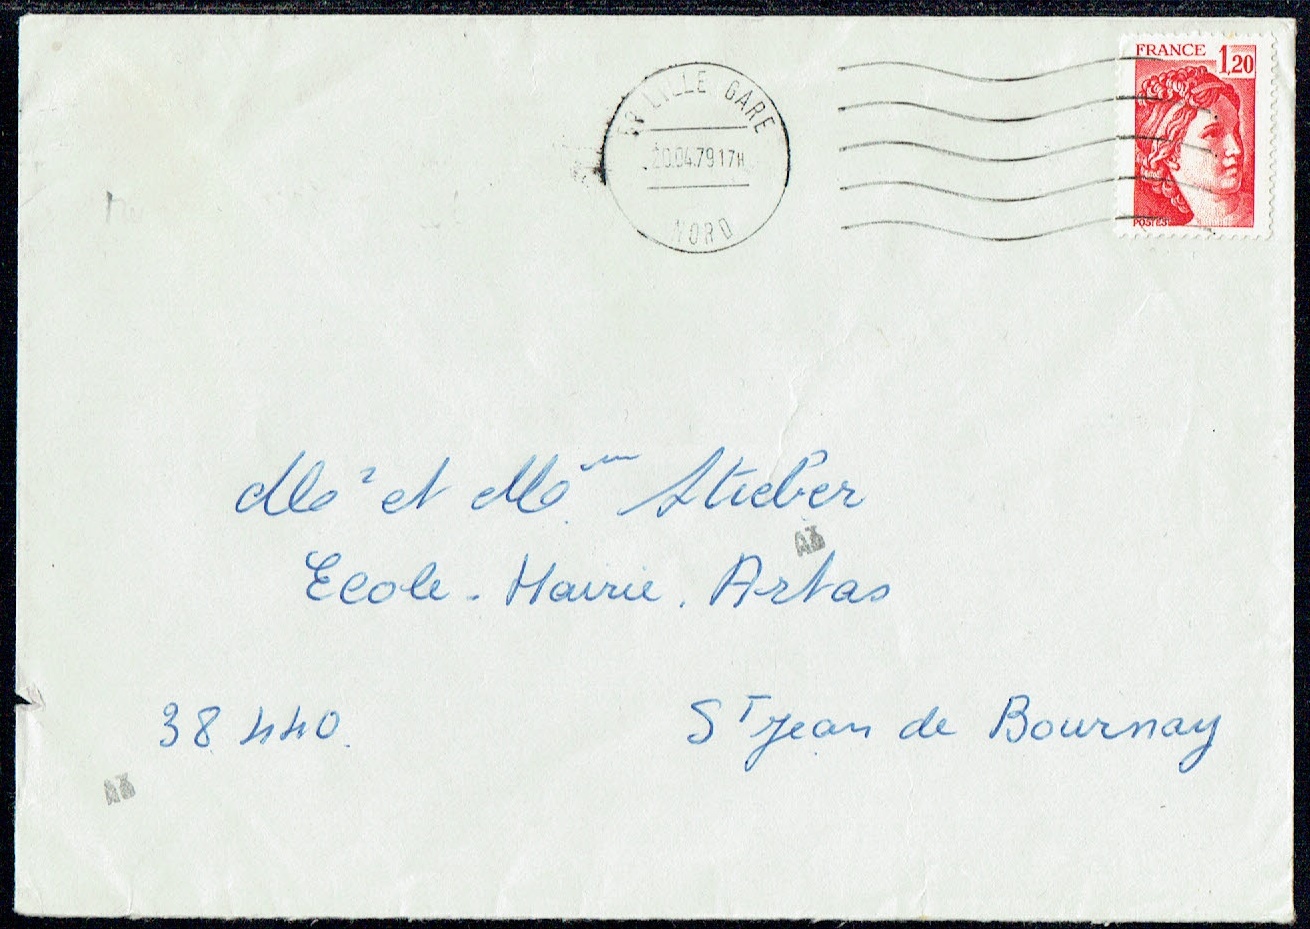 FRANCE 1,20
POSTES
59 LILLE GARE
20.04.79 17H
NORD
Mr et Mme Stieber
Ecole - Mairie. Artas
38 440.
St Jean de Bournay